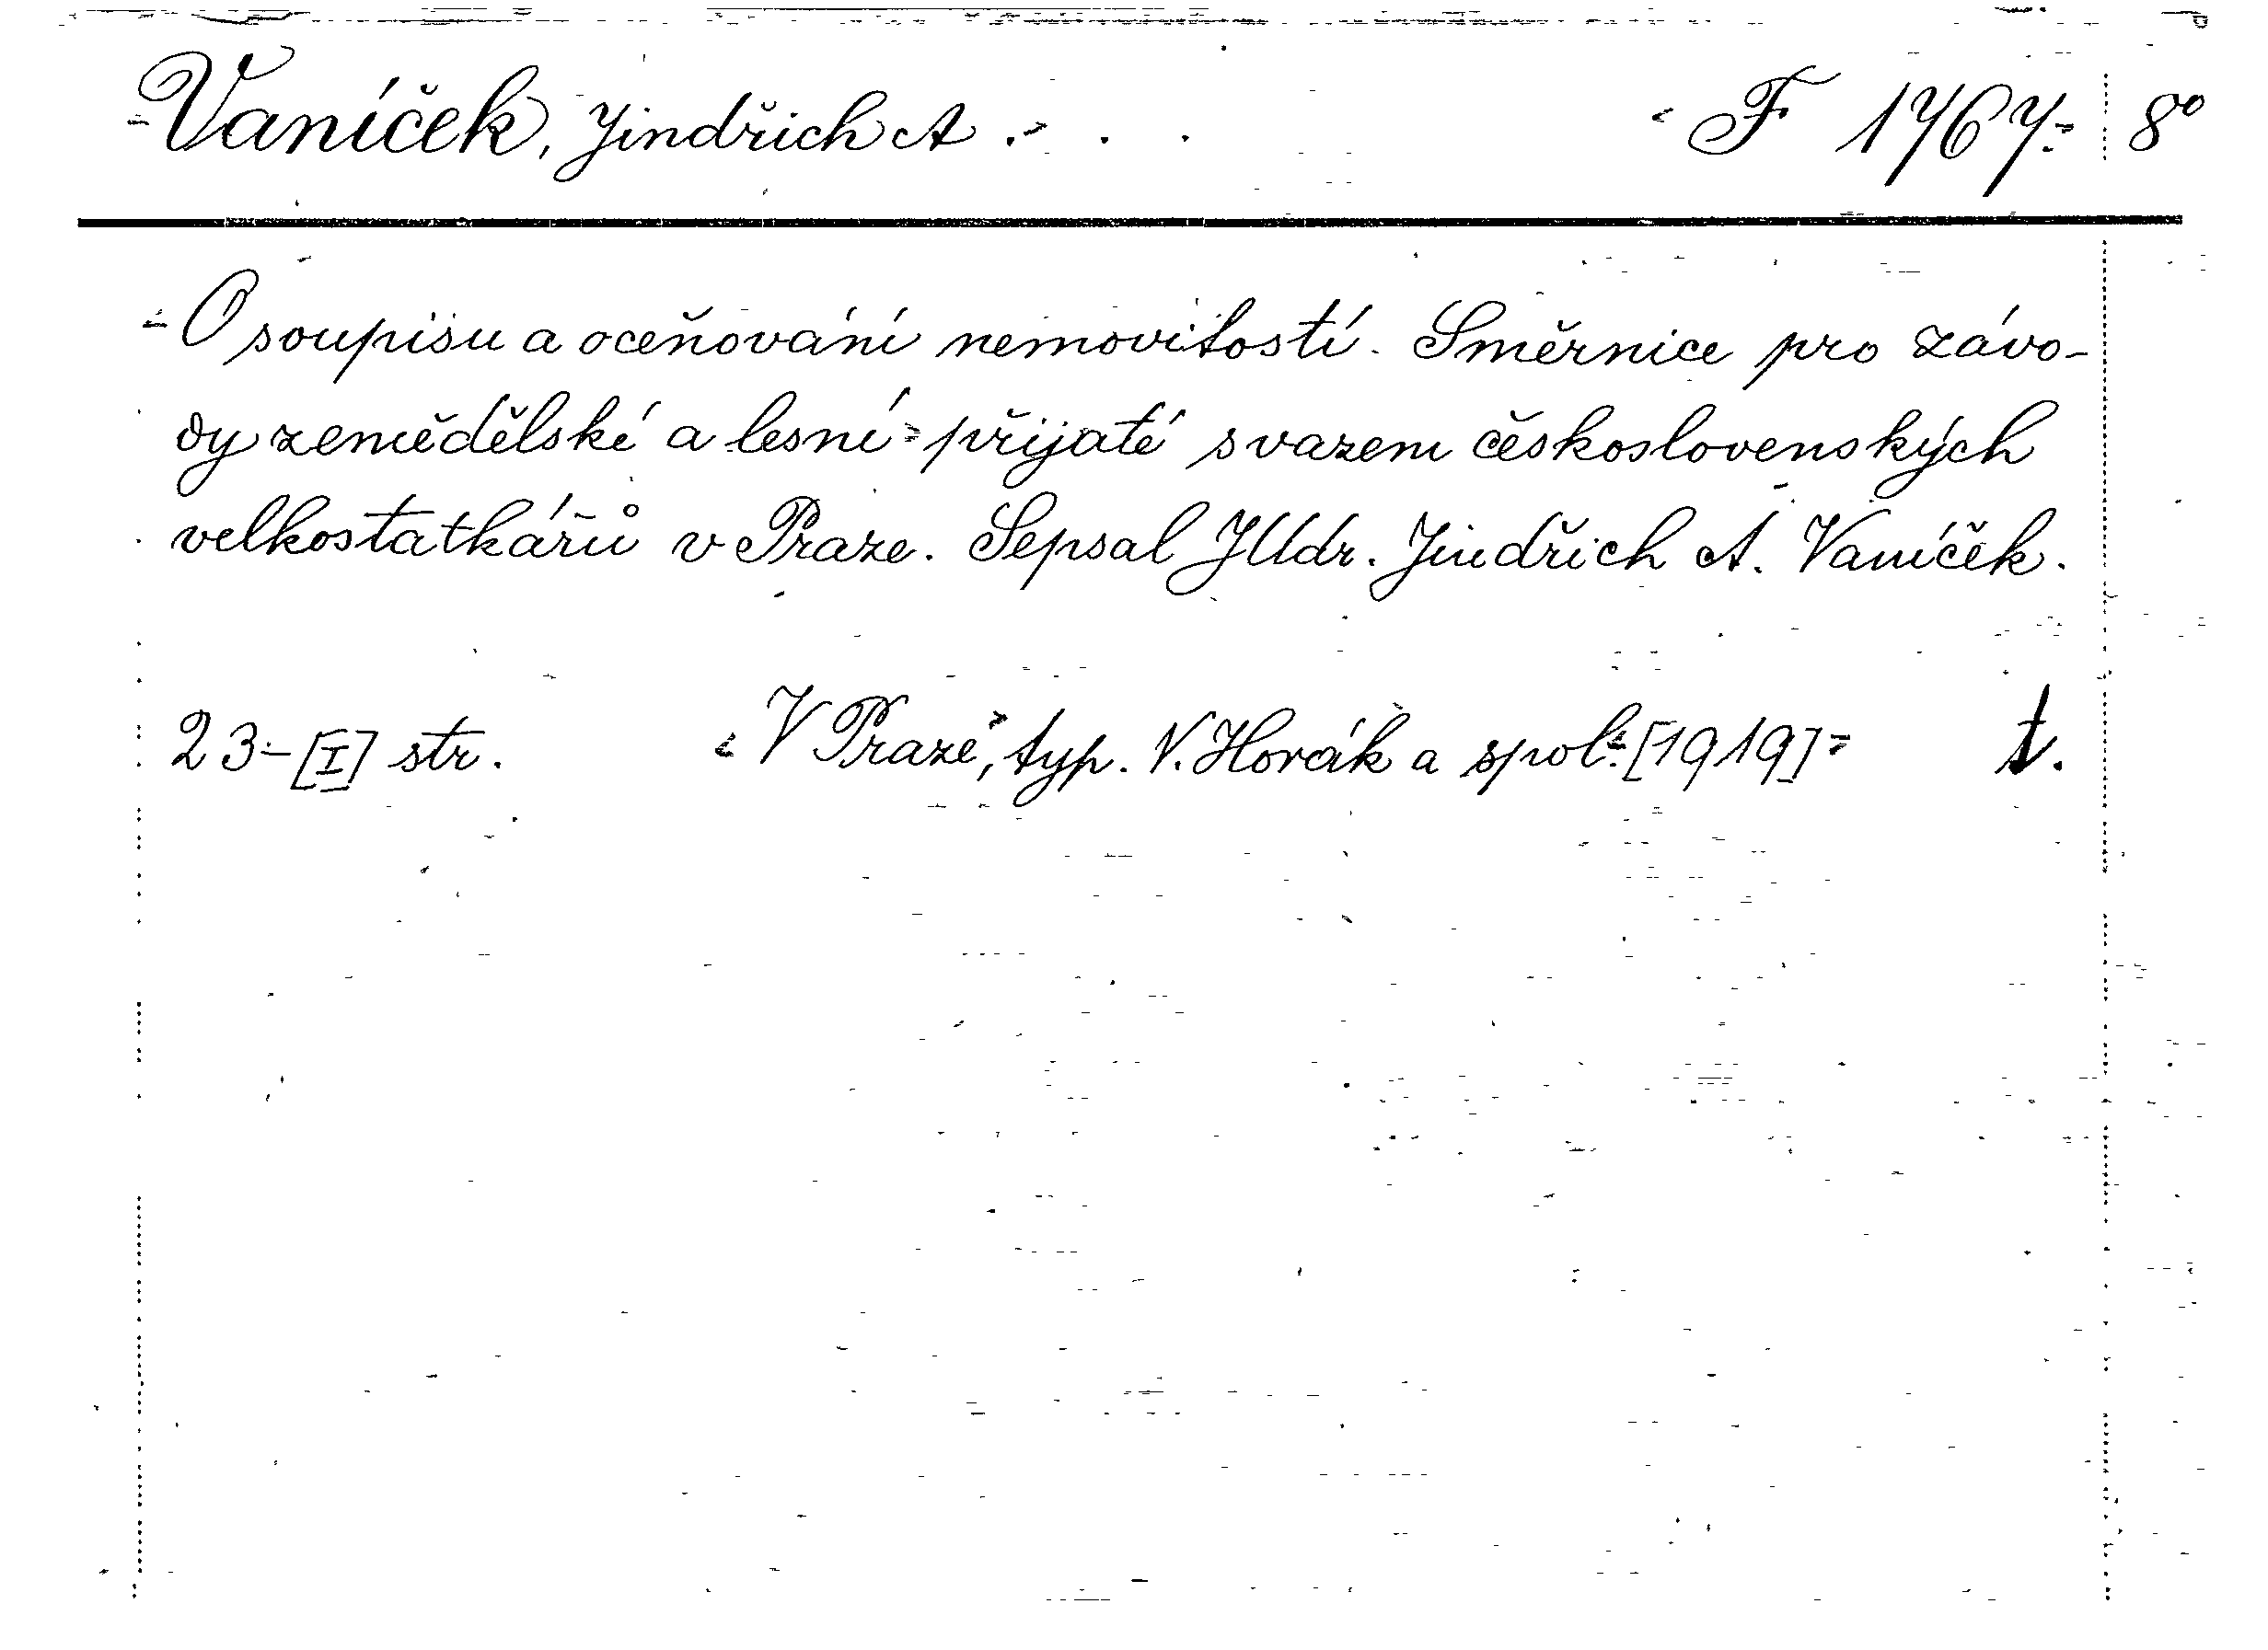 Vaníček, Jindřich A. F 1767 8°
O soupisu a oceňování nemovitostí. Směrnice pro závo-
dy zemědělské a lesní přijaté svazem československých
velkostatkářů v Praze. Sepsal JUdr. Jindřich A. Vaníček.
23-[I] str. V Praze, typ. N. Horák a spol. [1919] t.